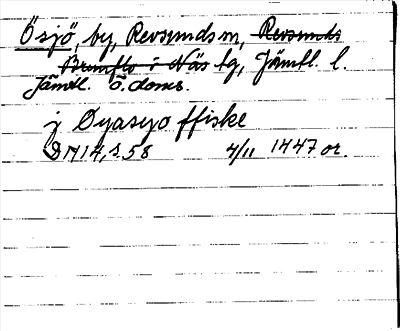 Ösjö, by, Revsunds sn, Revsunds
Brunflo i Näs tg, Jämtl. l.
Jämtl. Ö. doms.
j Øyasyo ffiske
D N 14, s. 58 4/11 1447 or.